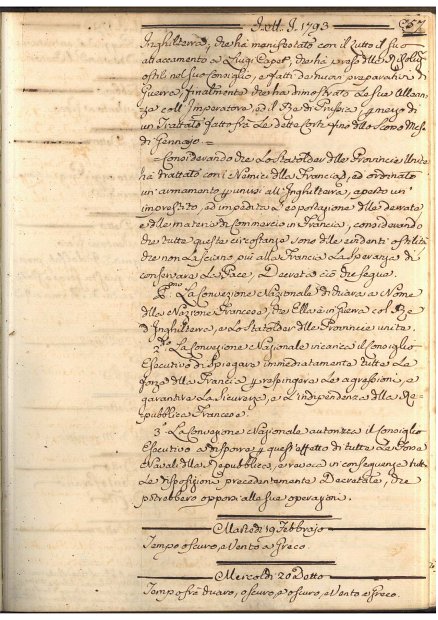 1793
257
Inghilterra, che hà manifestato con il tutto il suo
attaccamento a Luigi Capet, che hà preso delle
ostili nel suo Consiglio, e fatti de nuovi preparativi di
Guerra; finalmente che hà dimostrato la sua Allean-
za coll'Imperatore, ed il Rè di Prussia p mezzo di
un Trattato fatto frà le dette Corti fino dello Scorso Mese
di Gennajo =
= Considerando che lo Statolder delle Provincie Unite
hà trattato con i Nemici della Francia, ed ordinato
un'armamento p unirsi all'Inghilterra, aperto un
imprestito, ed impedita l'esportazione delle derrate
e delle materie di Commercio in Francia, considerando
che tutte queste circostanze sono delle evidenti ostilità
che non lasciano più alla Francia la Speranza di
conservare la Pace, Decreta ciò che segue.
P.mo La Convezione Nazionale dichiara a Nome
della Nazione Francese, che Ella è in Guerra col Rè
d'Inghilterra, e lo Statolder delle Provincie unite.
2.do La Convezione Nazionale incarica il Consiglio
Esecutivo di Spiegare immediatamente tutta la
forza della Francia p respingere le agressioni, e
garantire la Sicurezza, e l'indipendenza della Re-
pubblica Francese.
3.o La Convezione Nazionale autorizza il Consiglio
Esecutivo a disporre p quest'effetto di tutte le Forze
Navali della Repubblica, e revoca in conseguenza tutte
le disposizioni precedentemente Decretate, che
potrebbero opporsi alle sue operazioni.
Martedì 19 Febbrajo
Tempo oscuro, e Vento a Greco.
Mercoldì 20 Detto
Tempo frà chiaro, e oscuro, e Vento a Greco.